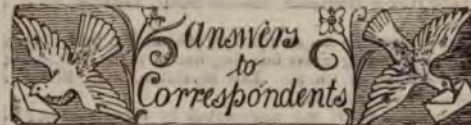 Answers
to
Correspondents